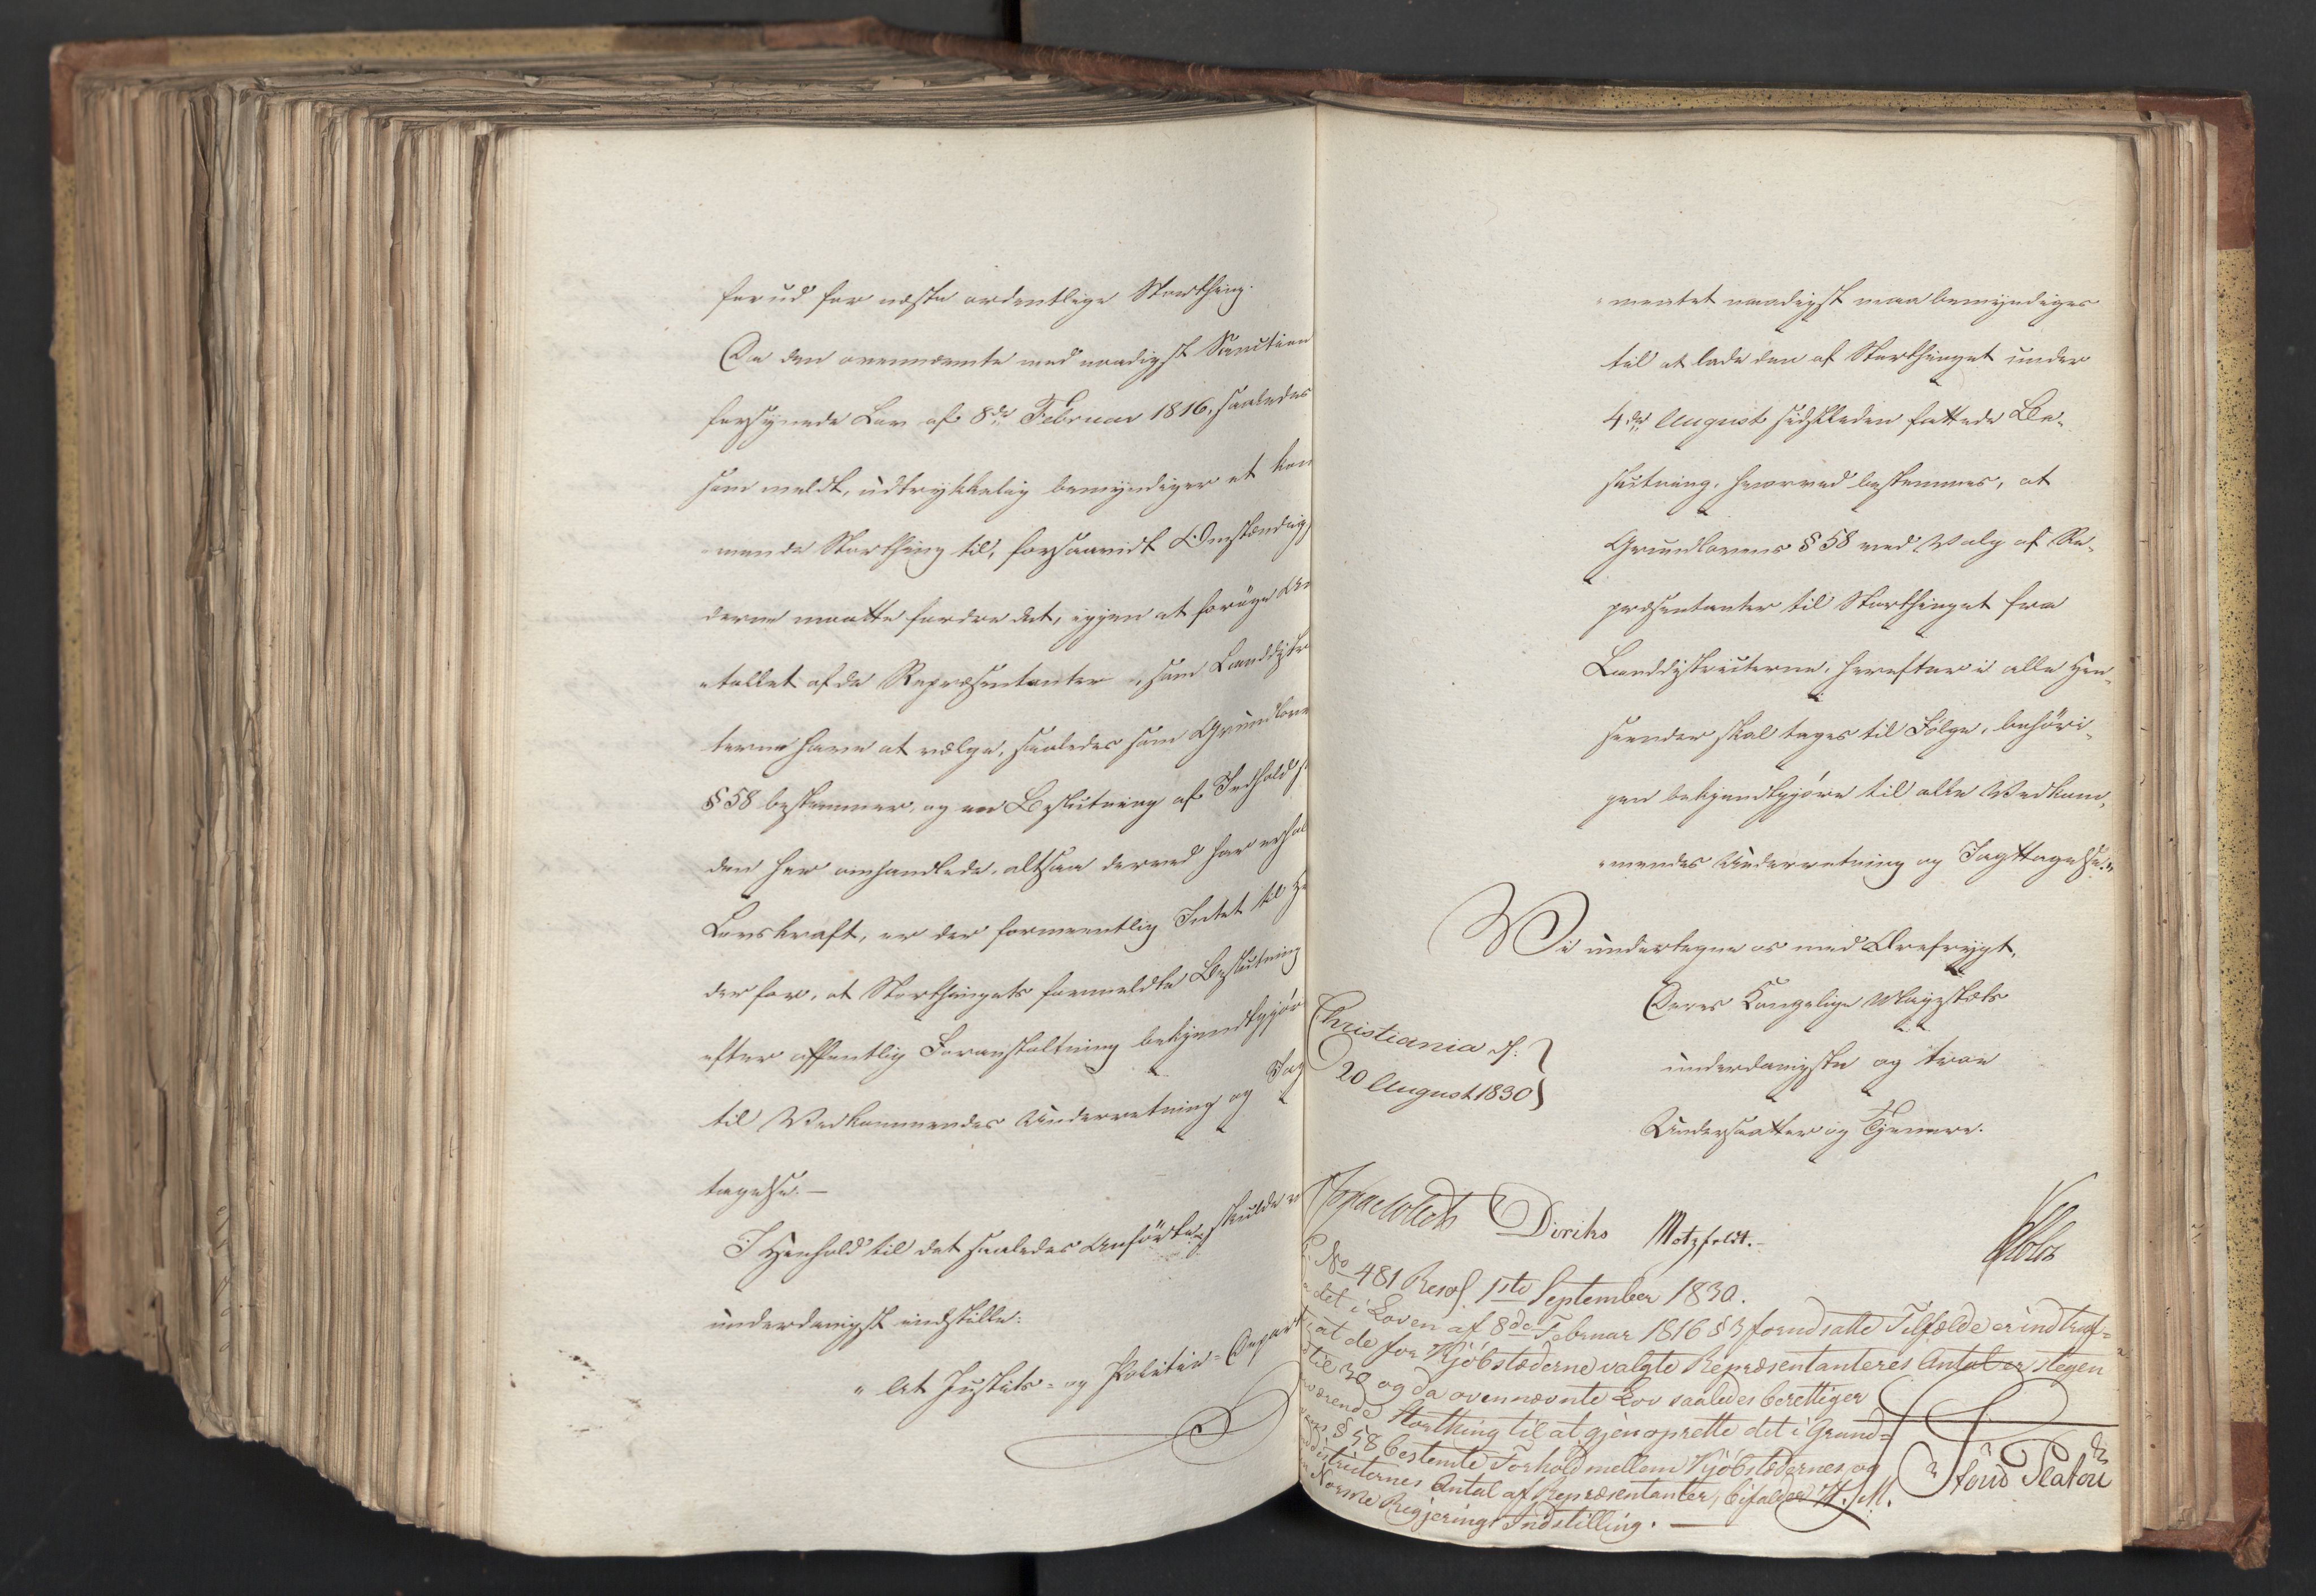 forud for neste ordentlige Storthing.
Da den ovennævnte med naadigst Sanction
forsynede Lov af 8de Februar 1816, saaledes
som meldt, udtrykkelig bemyndiger et kom
mende Storthing til, forsaavidt Omstændig
derne maatte fordre det, igjen at forøge An
tallet af de Repræsentanter, som Landdistr
terne have at vælge, saaledes som Grundlove
§ 58 bestemmer, og en Beslutning af Indhold s
den her omhandlede, altsaa derved har erhol
Lovskraft, er der formeentlig Intet til H
der for, at Storthingets formeldte Beslutning
efter offentlig Foranstaltning bekjendtgjør
til Vedkommendes Underretning og Iag
tagelse. —
I Henhold til det saaledes Anførte, skulde v
underdanigst indstille:
"At Justits- og Politie-Depart
mentet naadigst maa bemyndiges
til at lade den af Storthinget under
4de August sidstleden fattede Be-
slutning, hvorved bestemmes, at
Grundlovens § 58 ved Valg af Re-
præsentanter til Storthinget fra
Landdistricterne, herefter i alle Hen-
seender skal tages til Følge, behøri-
gen bekjendtgjøre til alle Vedkom-
mendes Underretning og Iagttagelse."
Vi undertegne os med Ærefrygt,
Deres Kongelige Majestæts
Christiania d.
20 August 1830
underdanigste og troe
Undersaatter og Tjenere.
Diriks Motzfeldt.
Holst
No 481 Resol. 1ste September 1830.
det i Loven af 8de Februar 1816 § 3 forudsatte Tilfælde er indtruf=
at de for Kjøbstæderne valgte Repræsentanteres Antal er stegen
til 30 og da ovennævnte Lov saaledes berettiger
værende Storthing til at gjenoprette det i Grund=
§ 58 bestemte Forhold mellem Kjøbstædernes og
districternes Antal af Repræsentanter, bifalder H. M.
Norske Regjerings Indstilling. —
Stoud Platou